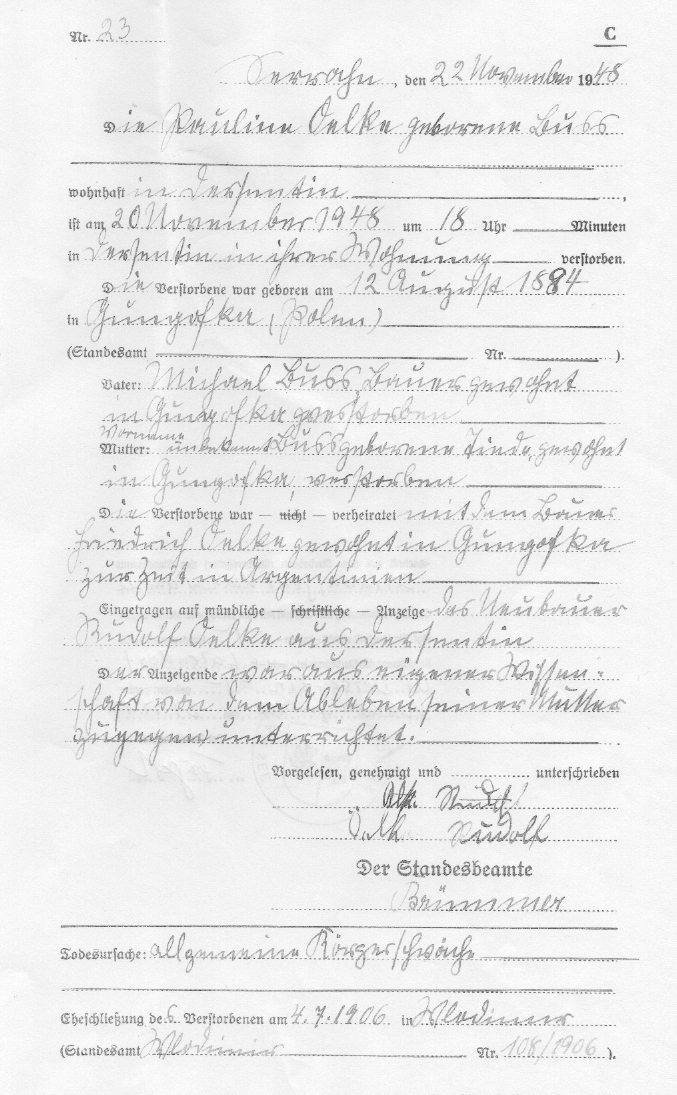 Nr. 23
C
Serrahn, den 22 November 1948
Die Pauline Oelke geborene Buss
wohnhaft in Dersentin,
ist am 20 November 1948 um 18 Uhr Minuten
in Dersentin in ihrer Wohnung verstorben.
Die Verstorbene war geboren am 12 August 1884
in Gungofka (Polen)
(Standesamt Nr. ).
Vater: Michael Buss, Bauer gewohnt
in Gungofka verstorben
Vorname
Mutter: unbekannt Buss geborene Tinde, gewohnt
in Gungofka, verstorben
Die Verstorbene war — nicht — verheiratet mit dem Bauer
Friedrich Oelke gewohnt in Gungofka
zur Zeit in Argentinien
Eingetragen auf mündliche — schriftliche — Anzeige des Neubauer
Rudolf Oelke aus Dersentin
Der Anzeigende war aus eigener Wissen-
schaft von dem Ableben seiner Mutter
zugegen unterrichtet.
Vorgelesen, genehmigt und unterschrieben
Rudolf
Rudolf
Der Standesbeamte
Brümmer
Todesursache: allgemeine Körperschwäche
Eheschließung des Verstorbenen am 4.7.1906 in Wlodimir
(Standesamt Wlodimir Nr. 108/1906 ).